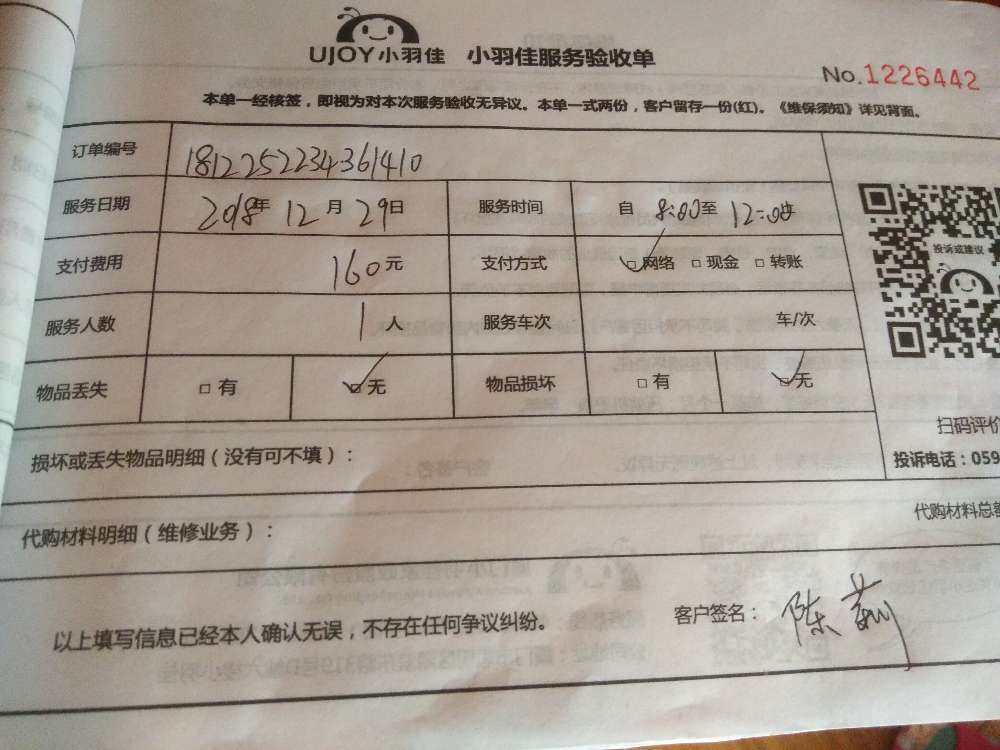 UJOY小羽佳 小羽佳服务验收单
No.1226442
本单一经核签，即视为对本次服务验收无异议。本单一式两份，客户留存一份(红)。《维保须知》详见背面。
订单编号 1812252234361410
服务日期 2018年 12月 29日 服务时间 自 8:00至 12:00时
支付费用 160元 支付方式 ☑网络 □现金 □转账
服务人数 1人 服务车次 车/次
物品丢失 □有 ☑无 物品损坏 □有 ☑无
投诉或建议
扫码评价
投诉电话：059
损坏或丢失物品明细（没有可不填）：
代购材料总额
代购材料明细（维修业务）：
以上填写信息已经本人确认无误，不存在任何争议纠纷。
客户签名：陈莉